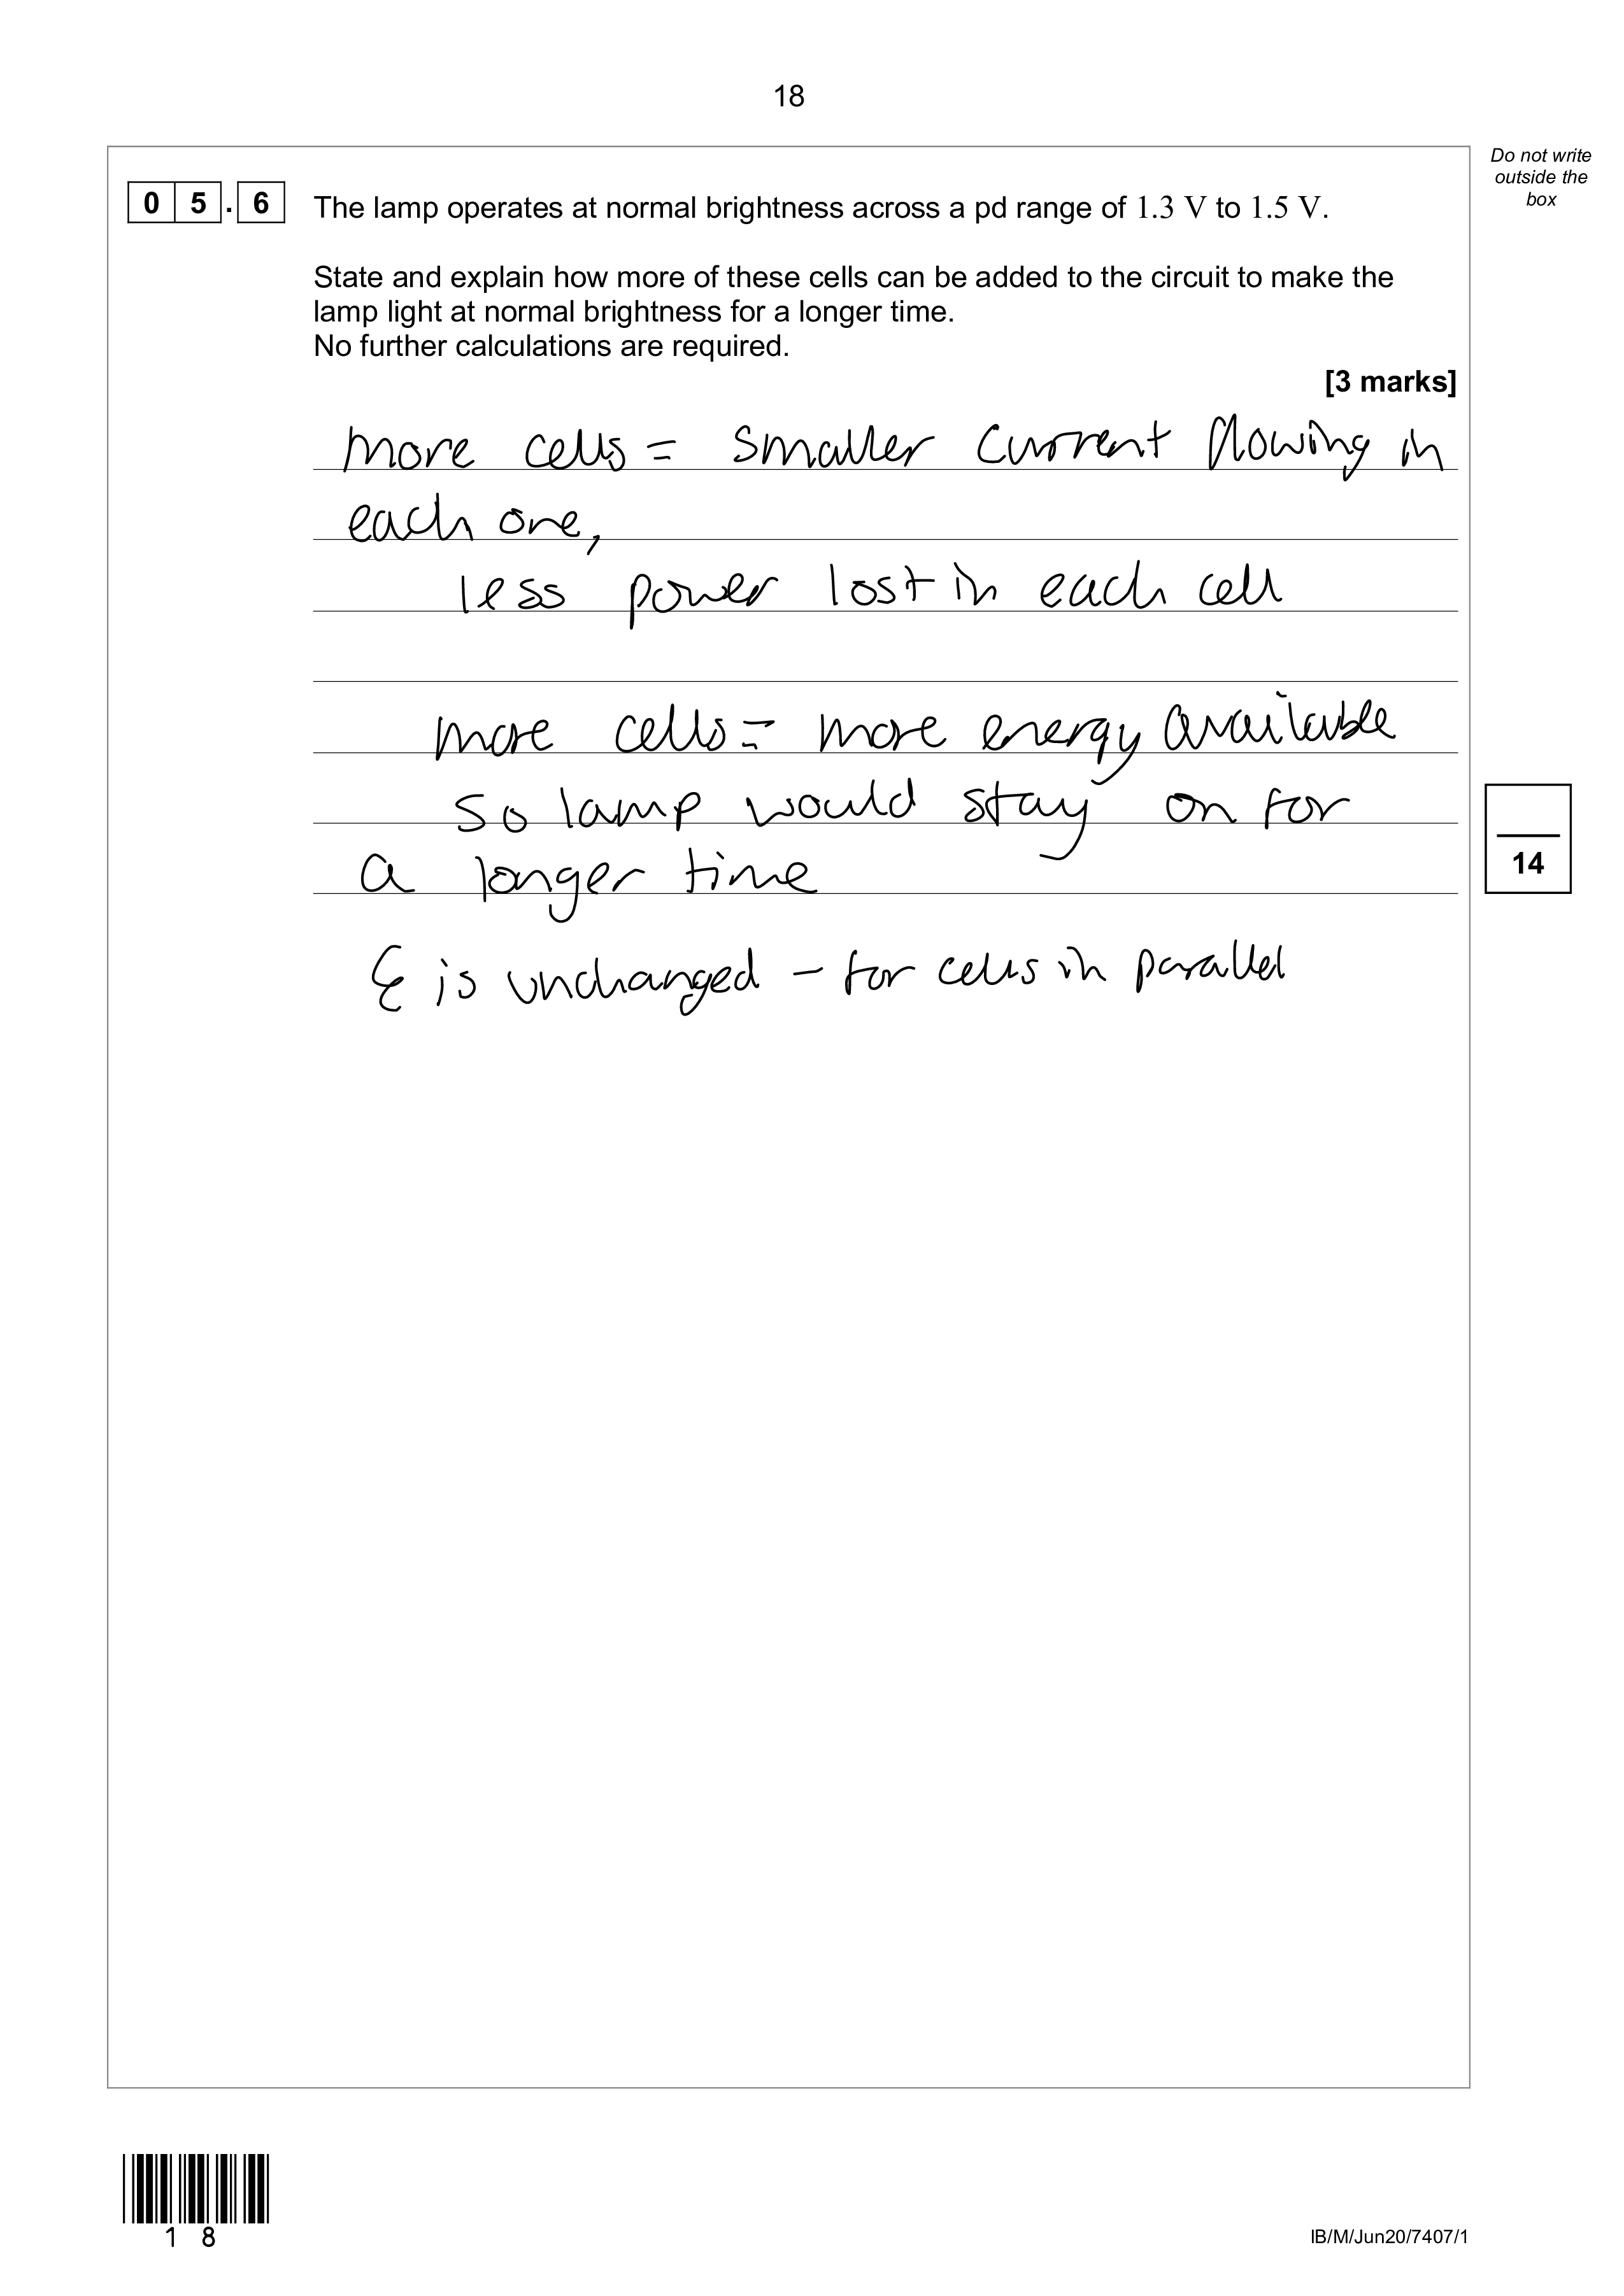 18
Do not write
outside the
box
0 5 . 6 The lamp operates at normal brightness across a pd range of 1.3 V to 1.5 V.
State and explain how more of these cells can be added to the circuit to make the
lamp light at normal brightness for a longer time.
No further calculations are required.
[3 marks]
more cells = smaller current flowing in
each one,
less power lost in each cell
more cells = more energy available
so lamp would stay on for
a longer time
14
ε is unchanged – for cells in parallel
1 8
IB/M/Jun20/7407/1